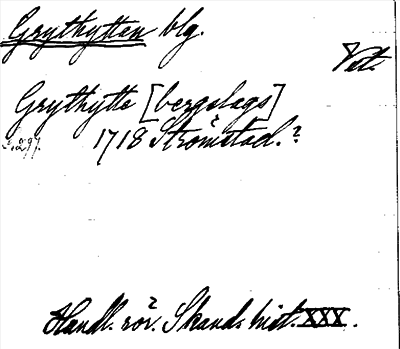 Grythyttan blg.
Vet.
Grythytte [bergslags]
1718 Strömstad.?
Handl. rör. Skand. hist. XXX.